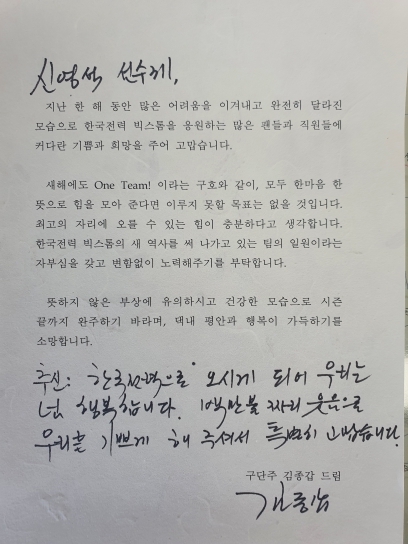 신영석 선수께,
지난 한 해 동안 많은 어려움을 이겨내고 완전히 달라진
모습으로 한국전력 빅스톰을 응원하는 많은 팬들과 직원들에
커다란 기쁨과 희망을 주어 고맙습니다.
새해에도 One Team! 이라는 구호와 같이, 모두 한마음 한
뜻으로 힘을 모아 준다면 이루지 못할 목표는 없을 것입니다.
최고의 자리에 오를 수 있는 힘이 충분하다고 생각합니다.
한국전력 빅스톰의 새 역사를 써 나가고 있는 팀의 일원이라는
자부심을 갖고 변함없이 노력해주기를 부탁합니다.
뜻하지 않은 부상에 유의하시고 건강한 모습으로 시즌
끝까지 완주하기 바라며, 댁내 평안과 행복이 가득하기를
소망합니다.
추신: 한국전력으로 오시게 되어 우리는
넘 행복합니다. 백만불 짜리 웃음으로
우리를 기쁘게 해 주셔서 특별히 고맙습니다.
구단주 김종갑 드림
김종갑